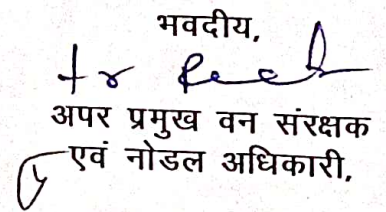 भवदीय,
अपर प्रमुख वन संरक्षक
एवं नोडल अधिकारी,